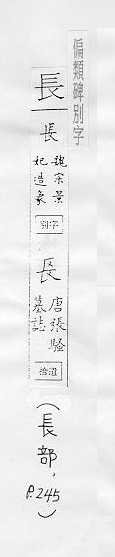 偏類碑別字
長
長
魏宋景
妃造象
別字
長
唐張騷
墓誌
拾遺
(長部,
P.245)